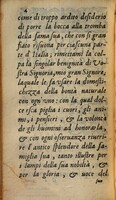 come di troppo ardiro desiderio
di porre la bocca alla tromba
della fama sua, che con sì gran
fiato risuona per ciascuna par-
te d'Italia; rimettomi la col-
pa la singolar benignità di Vo-
stra Signoria, mio gran Signore,
laquale le fa usare la domesti-
chezza della bontà naturale
con ogni uno: con la qual dol-
cezza piglia i cuori, gli ani-
mi, i pensieri, & la volontà
de gli huomini ad honorarla,
& con ogni osservanza riverir-
la
e l'antico splendore della fa-
miglia sua, tanto illustre per
i tempi della sua nobiltà, &
per la gloria; & voce del